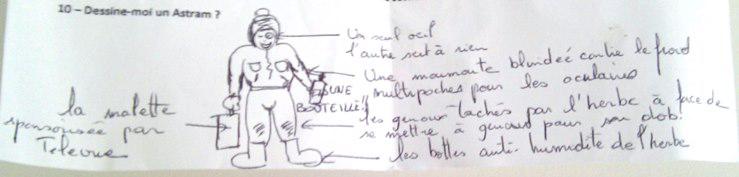 10 – Dessine-moi un Astram ?
Un seul oeil
l'autre sert à rien
Une moumoute blindée contre le froid
multipoches pour les oculaires
UNE
BOUTEILLE!
les genoux tachés par l'herbe à force de
se mettre à genoux pour son dob!
les bottes anti-humidité de l'herbe
la malette
sponsorisée par
Televue